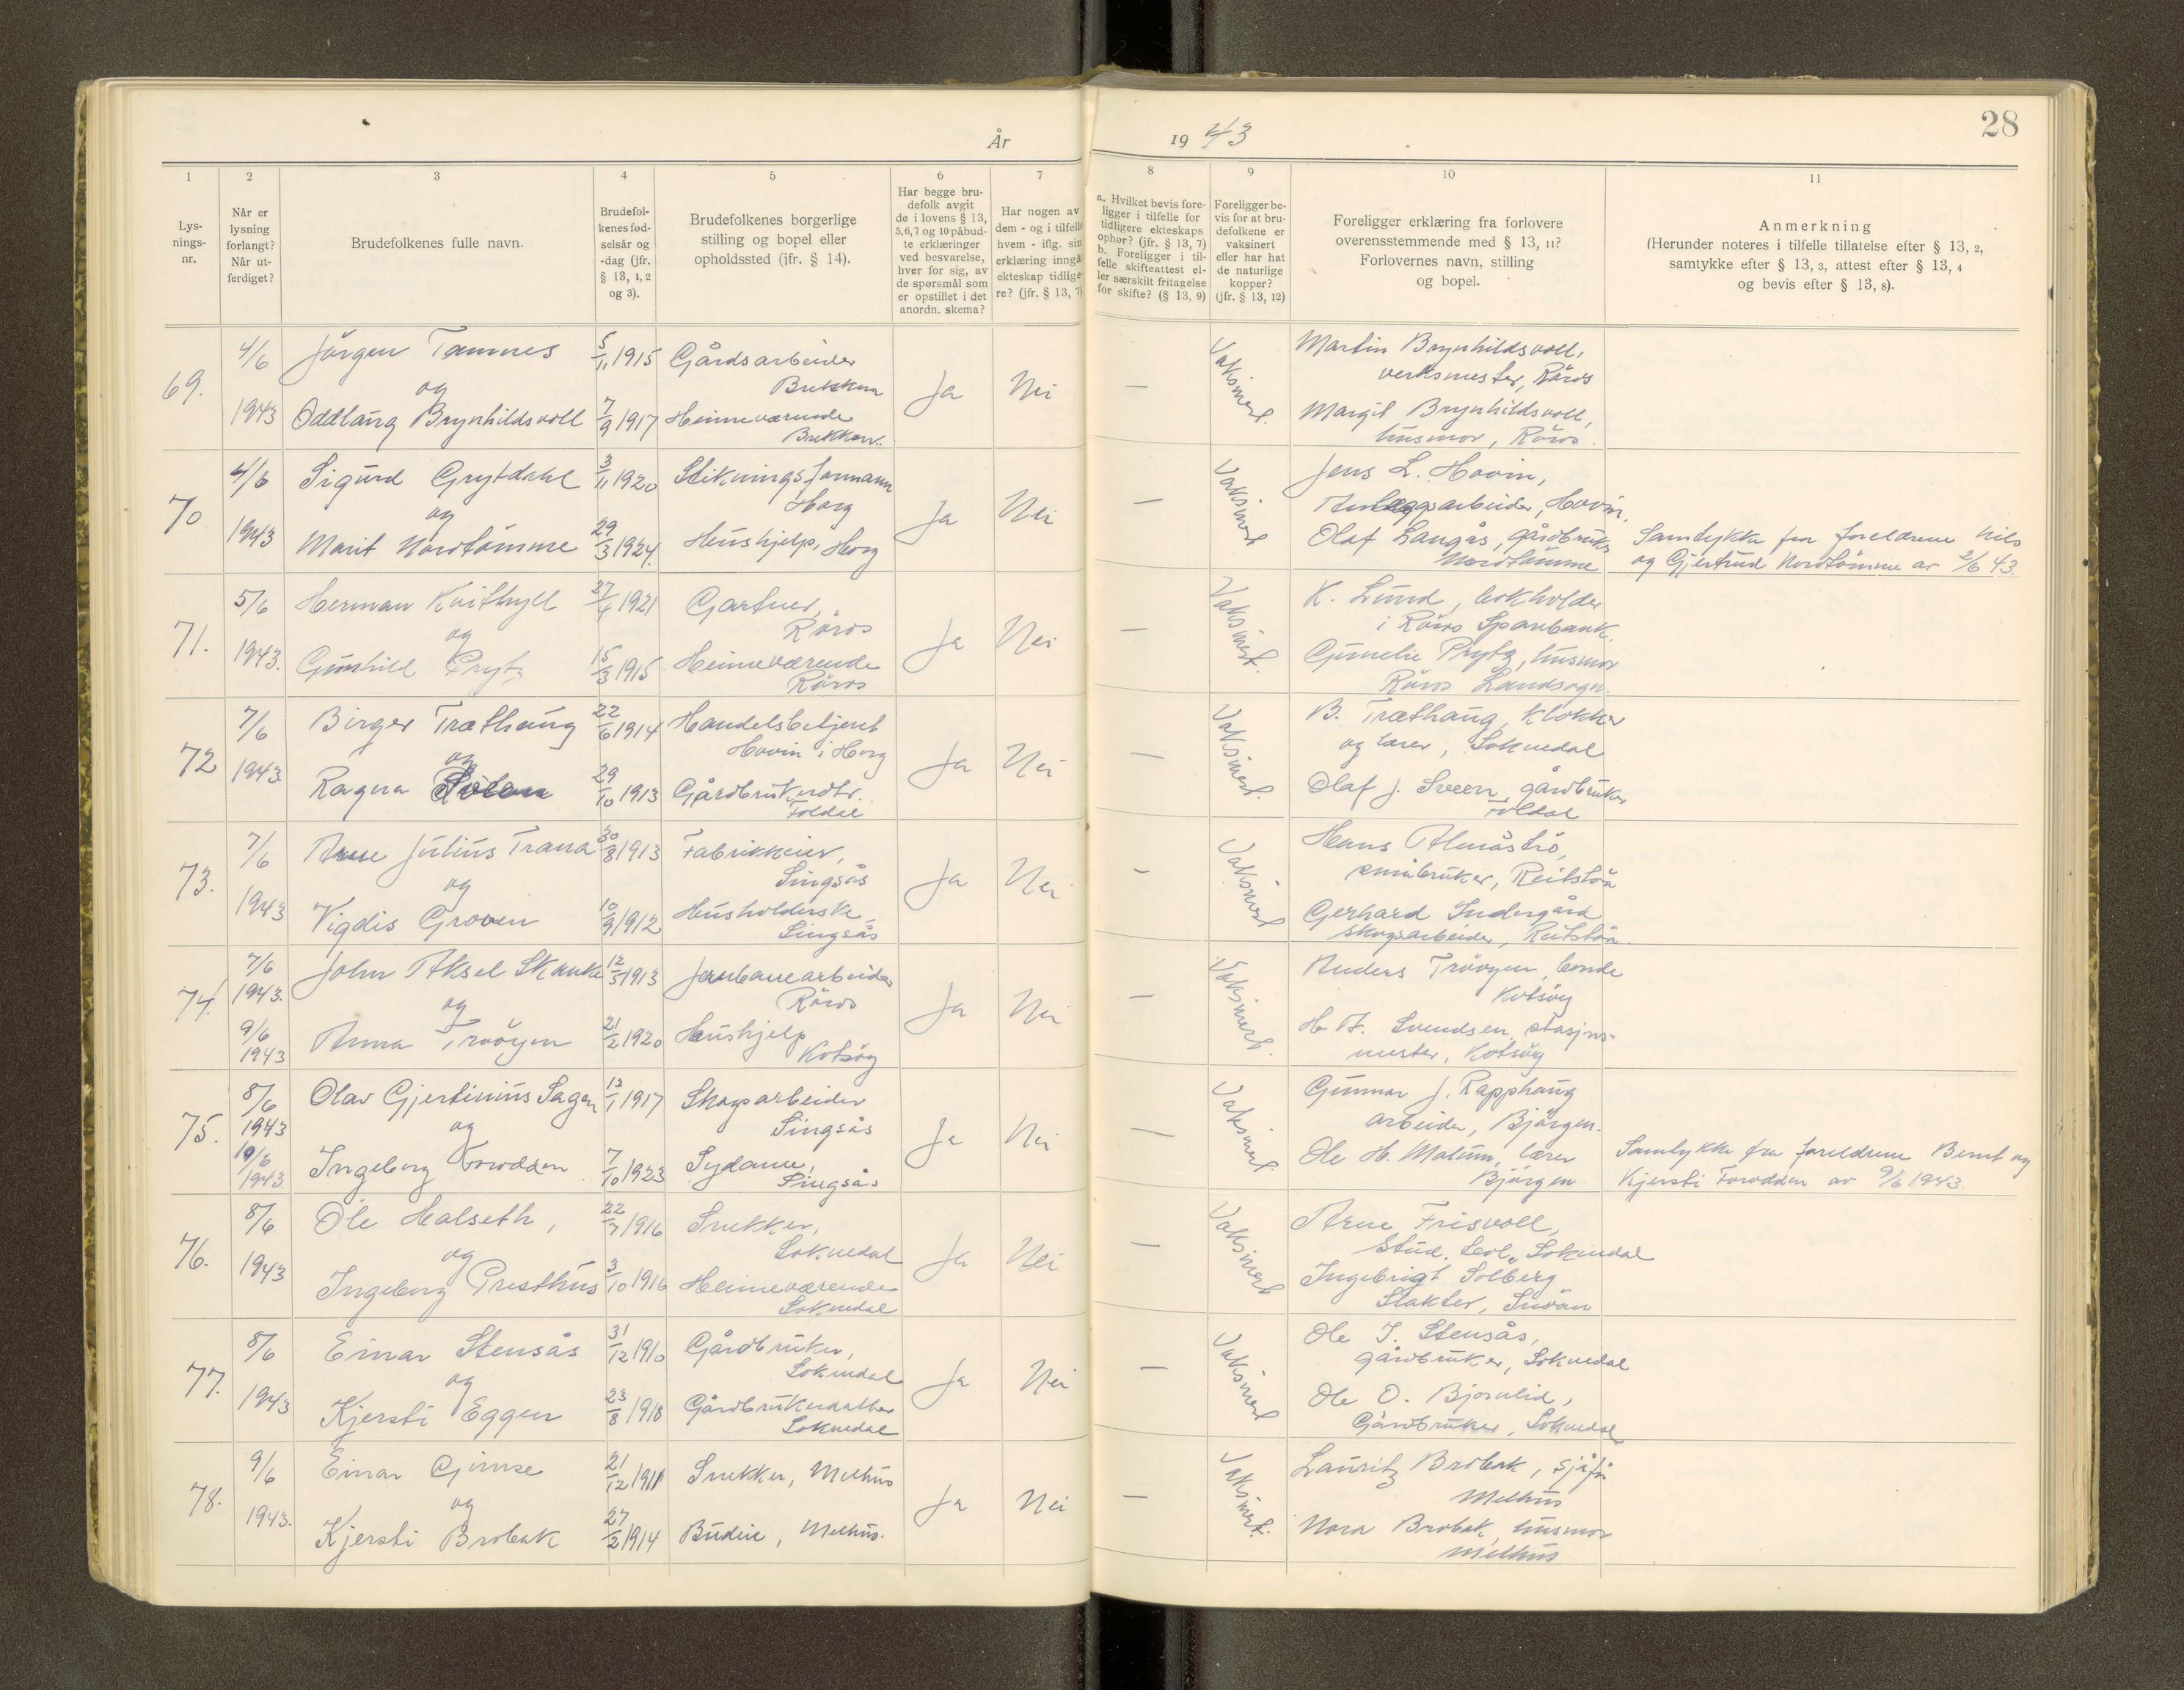 28
År 19 43
1
2
3
4
5
6
7
8
9
10
11
Lys-
nings-
nr.
Når er
lysning
forlangt?
Når ut-
ferdiget?
Brudefolkenes fulle navn.
Brudefol-
kenes fød-
selsår og
-dag (jfr.
§ 13, 1, 2
og 3).
Brudefolkenes borgerlige
stilling og bopel eller
opholdssted (jfr. § 14).
Har begge bru-
defolk avgit
de i lovens § 13,
5, 6, 7 og 10 påbud-
te erklæringer
ved besvarelse,
hver for sig, av
de spørsmål som
er opstillet i det
anordn. skema?
Har nogen av
dem - og i tilfelle
hvem - iflg. sin
erklæring inngå
ekteskap tidlige-
re? (jfr. § 13, 7)
a. Hvilket bevis fore-
ligger i tilfelle for
tidligere ekteskaps
ophør? (jfr. § 13, 7)
b. Foreligger i til-
felle skifteattest el-
ler særskilt fritagelse
for skifte? (§ 13, 9)
Foreligger be-
vis for at bru-
defolkene er
vaksinert
eller har hat
de naturlige
kopper?
(jfr. § 13, 12)
Foreligger erklæring fra forlovere
overensstemmende med § 13, 11?
Forlovernes navn, stilling
og bopel.
Anmerkning
(Herunder noteres i tilfelle tillatelse efter § 13, 2,
samtykke efter § 13, 3, attest efter § 13, 4
og bevis efter § 13, 8).
69.
4/6
1943
Jörgen Tamnes
og
Oddlaug Brynhildsvoll
5/11 1915
7/9 1917
Gårdsarbeider
Brekken
Heimeværende
Brekken.
Ja
Nei
—
Vaksinert.
Martin Brynhildsvoll,
verksmester, Röros
Margit Brynhildsvoll,
husmor, Röros.
70
4/6
1943
Sigurd Grytdahl
og
Marit Nordtömme
3/11 1920
29/3 1924.
Stikningsformann
Horg
Hushjelp, Horg
Ja
Nei
—
Vaksinert
Jens L. Hovin,
Anleggsarbeider, Hovin.
Olaf Langås, gårdbruker
Nordtömme
Samtykke fra foreldrene Nils
og Gjertrud Nordtömme av 2/6 43.
71.
5/6
1943.
Herman Kvithyll
og
Gunhild Prytz
27/4 1921
15/3 1915
Gartner,
Röros
Heimeværende
Röros
Ja
Nei
—
Vaksinert.
K. Lund, bokholder
i Röros Sparebank.
Gunelie Prytz, husmor
Röros Landsogn.
72
7/6
1943
Birger Træthaug
og
Ragna
22/6 1914
29/10 1913
Handelsbetjent
Hovin i Horg
Gårdbrukerdtr.
Foldal
Ja
Nei
—
Vaksinert.
B. Træthaug, klokker
og lærer, Soknedal
Olaf J. Sveen, gårdbruker
Folldal
73.
7/6
1943
Arne Julius Tranå
og
Vigdis Groven
30/8 1913
10/9 1912
Fabrikkeier,
Singsås
Husholderske,
Singsås
Ja
Nei
—
Vaksinert
Hans Almåströ,
småbruker, Reitstöa
Gerhard Sundergård
skogsarbeider, Reitstöa.
74.
7/6
1943.
9/6
1943
John Aksel Skanke
og
Anna Trööyen
12/3 1913
21/2 1920
Jernbanearbeider
Röros
Hushjelp
Kotsöy
Ja
Nei
—
Vaksinert.
Anders Trööyen, bonde
Kotsöy
H. A. Svendsen, stasjons-
mester, Kotsöy
75.
8/6
1943
19/6
1943.
Olav Gjertinius Sagen
og
Ingeborg Forodden
13/1 1917
7/10 1923
Skogsarbeider
Singsås
Sydame,
Singsås
Ja
Nei
—
Vaksinert
Gunnar J. Rapphaug
arbeider, Bjørgen.
Ole H. Molum, lærer
Bjørgen
Samtykke fra foreldrene Bernt og
Kjersti Forodden av 9/6 1943
76.
8/6
1943
Ole Halseth,
og
Ingeborg Presthus
22/7 1916
3/10 1916
Snekker,
Soknedal
Heimeværende
Soknedal
Ja
Nei
—
Vaksinert
Arne Frisvoll,
Stud. teol., Soknedal
Ingebrigt Solberg
Slakter, Snöan
77.
8/6
1943
Einar Stensås
og
Kjersti Eggen
31/12 1910
23/8 1918
Gårdbruker,
Soknedal
Gårdbrukerdatter
Soknedal
Ja
Nei
—
Vaksinert
Ole I. Stensås,
gårdbruker, Soknedal
Ole O. Bjørnlid,
Gårdbruker, Soknedal
78.
9/6
1943.
Einar Gimse
og
Kjersti Brobak
21/12 1911
27/2 1914
Snekker, Melhus
Budeie, Melhus.
Ja
Nei
—
Vaksinert.
Lauritz Brobak, sjåfør
Melhus
Nora Brobak, husmor
Melhus